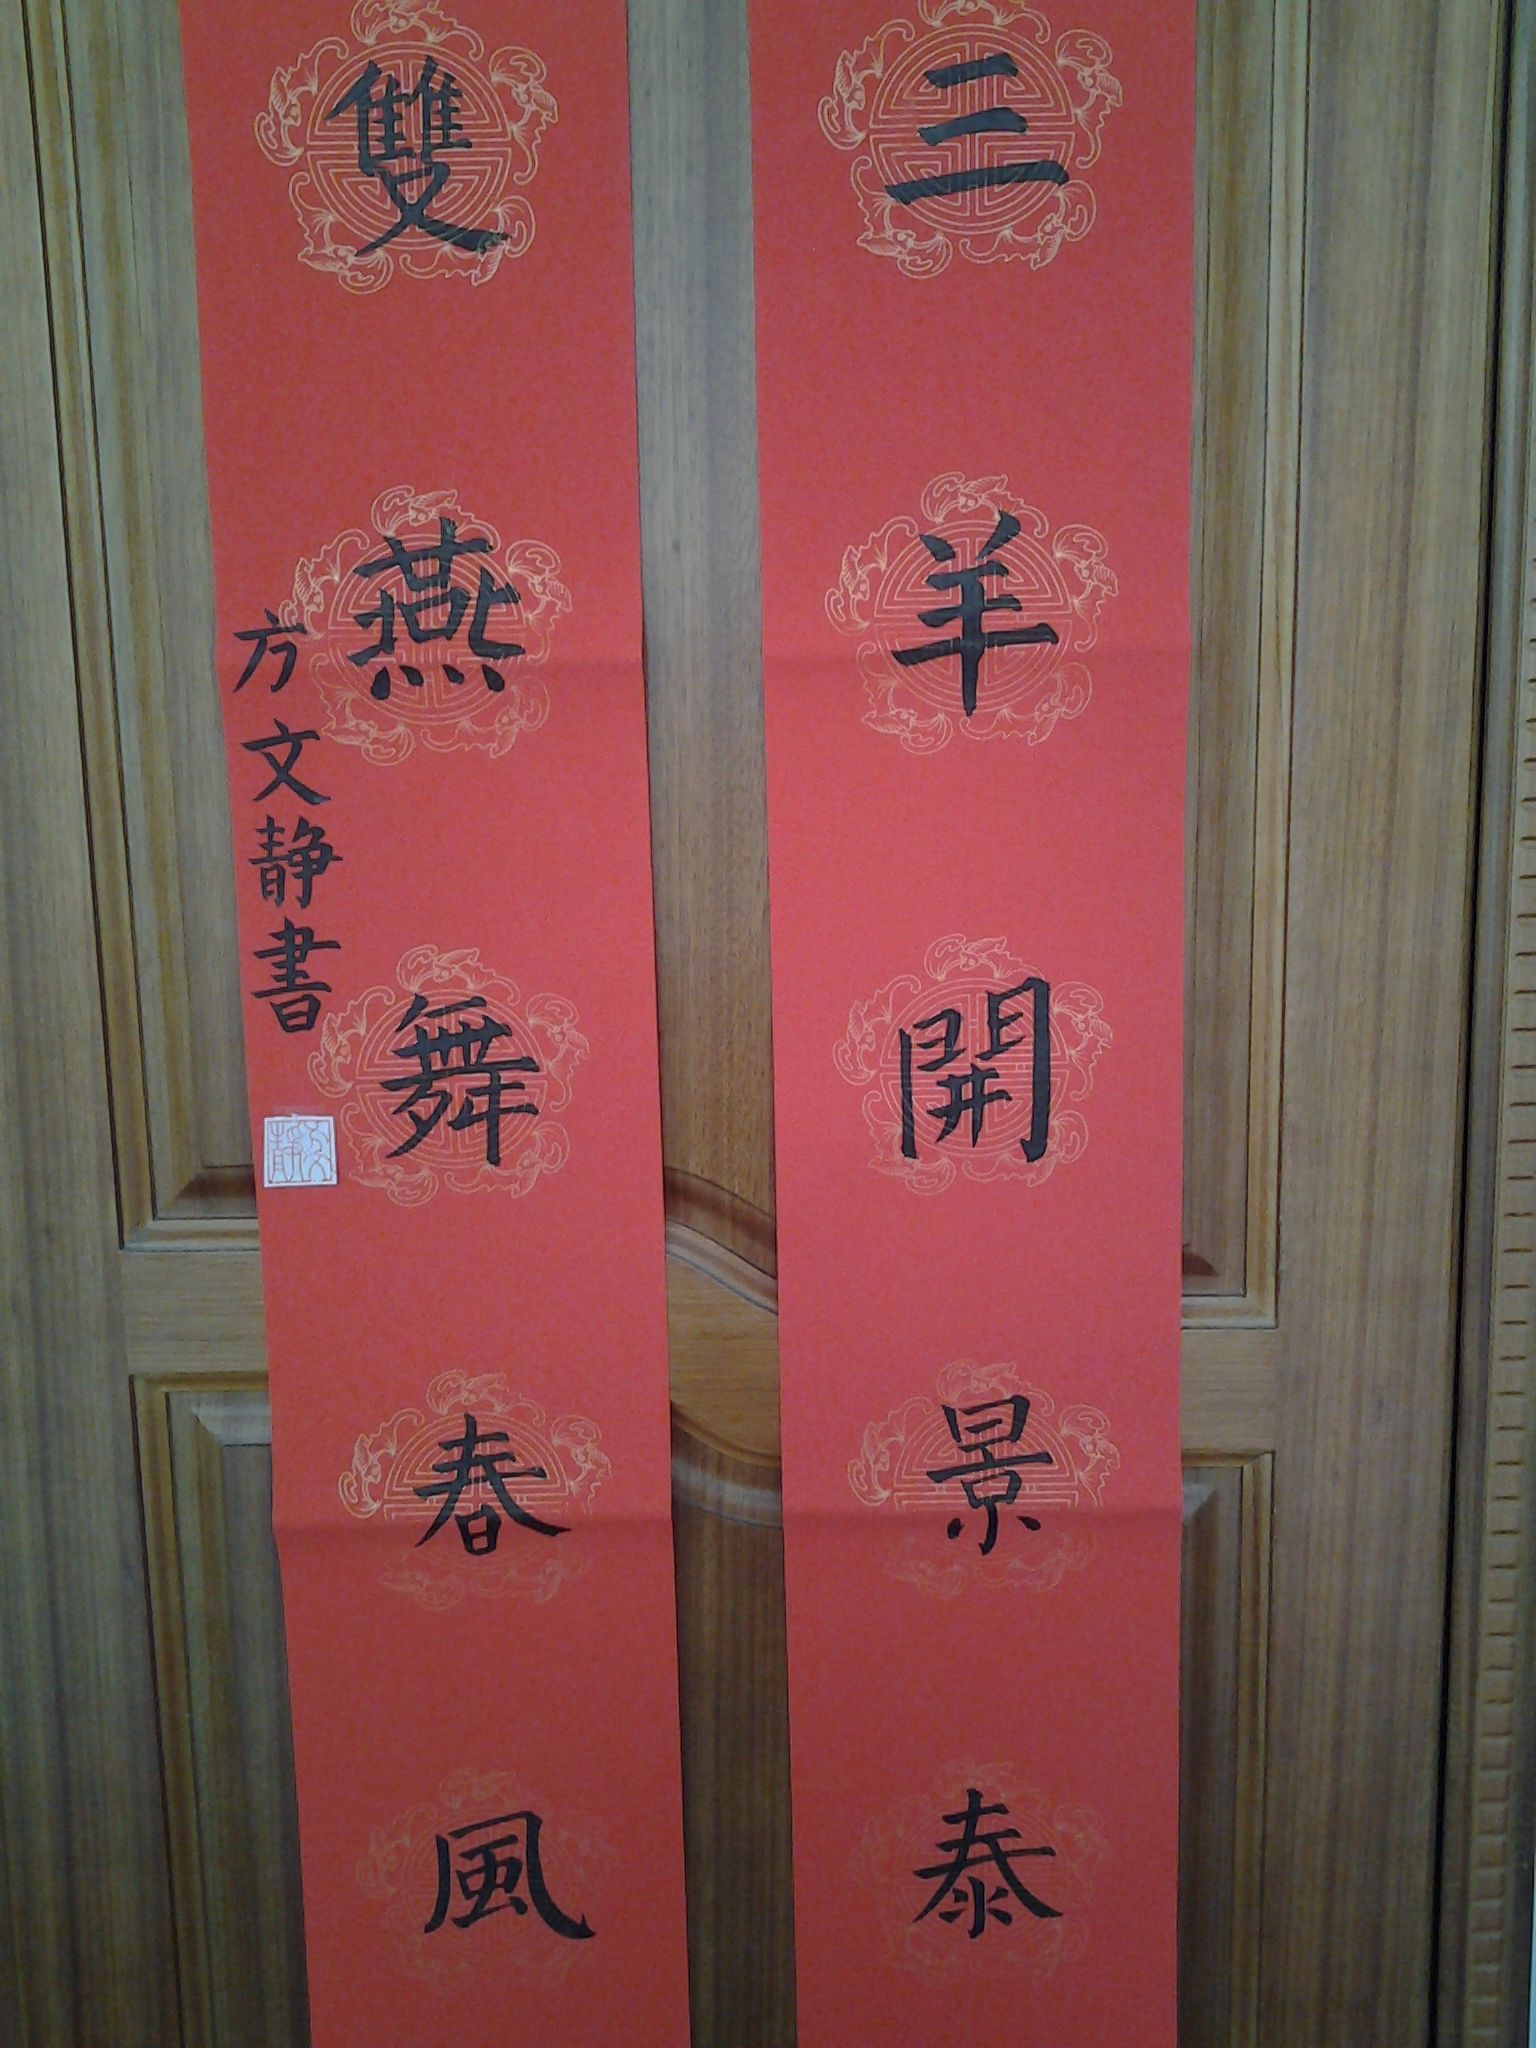 三羊開景泰
雙燕舞春風
方文静書
文静